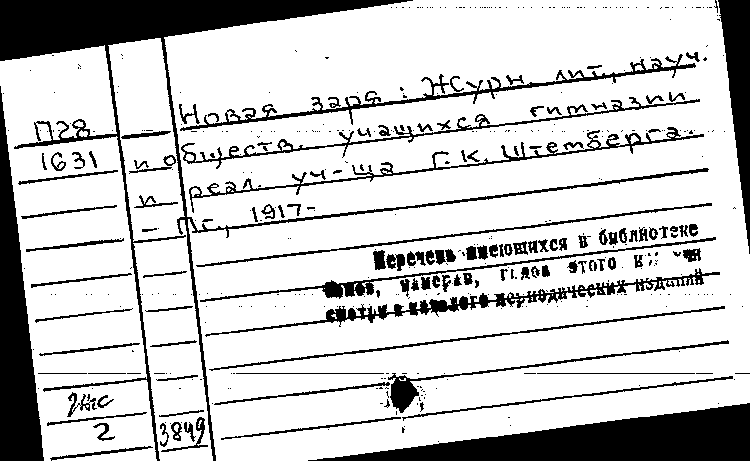 П28
1631
Новая заря: Журн. лит., науч.
и обществ. учащихся гимназии
и реал. уч-ща Г.К. Штемберга.
- Пг., 1917-
Перечень имеющихся в библиотеке
томов, номеров, годов этого издания
смотри в каталоге периодических изданий
2
3849